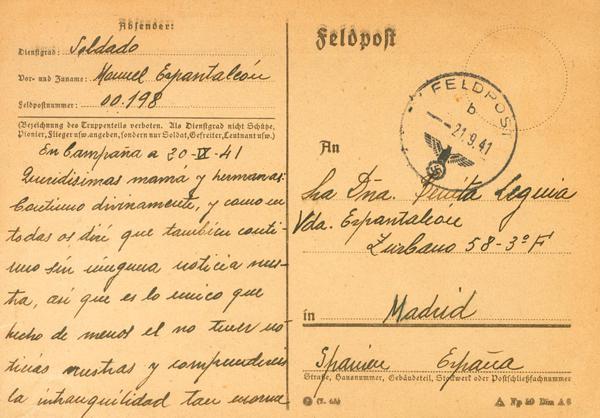 Absender:
Dienstgrad: Soldado
Vor- und Zuname: Manuel Espantaleón
Feldpostnummer: 00.198
(Bezeichnung des Truppenteils verboten. Als Dienstgrad nicht Schütze,
Pionier, Flieger usw. angeben, sondern nur Soldat, Gefreiter, Leutnant usw.)
En Campaña a 20-IX-41
Queridisimas mama y hermanas:
Continuo divinamente, y como en
todas os diré que tambien conti-
nuo sin ninguna noticia vues-
tra, asi que es lo unico que
hecho de menos el no tener no-
ticias vuestras y comprendereis
la intranquilidad tan enorme
Feldpost
FELDPOST
b
21.9.41
An
Sra Dña. Leguia
Vda. Espantaleon
Zurbano 58-3º F
in Madrid
Spanien España
Straße, Hausnummer, Gebäudeteil, Stockwerk oder Postschließfachnummer